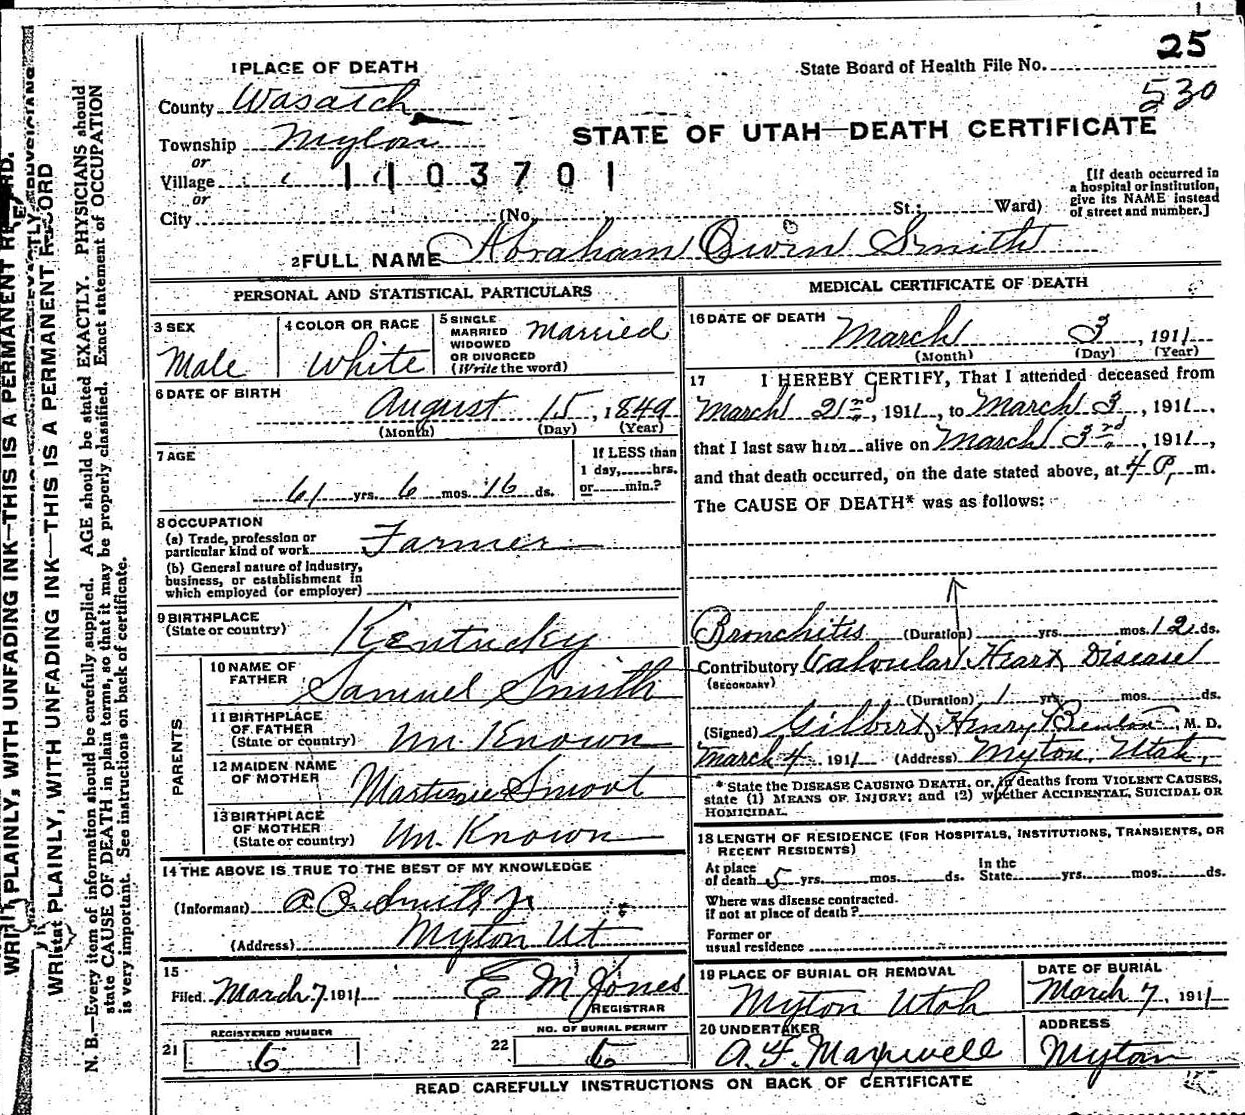 25
State Board of Health File No.
530
1 PLACE OF DEATH
County Wasatch
STATE OF UTAH—DEATH CERTIFICATE
Township Myton
or
Village 1103701
or
City (No. St.; Ward)
[If death occurred in a hospital or institution, give its NAME instead of street and number.]
2 FULL NAME Abraham Owin Smith
PERSONAL AND STATISTICAL PARTICULARS
3 SEX
Male
4 COLOR OR RACE
White
5 SINGLE MARRIED WIDOWED OR DIVORCED (Write the word)
Married
6 DATE OF BIRTH
August 15, 1849
(Month) (Day) (Year)
7 AGE
61 yrs. 6 mos. 16 ds.
If LESS than
1 day, hrs.
or min.?
8 OCCUPATION
(a) Trade, profession or
particular kind of work Farmer
(b) General nature of industry,
business, or establishment in
which employed (or employer)
9 BIRTHPLACE
(State or country) Kentucky
PARENTS
10 NAME OF
FATHER Samuel Smith
11 BIRTHPLACE
OF FATHER
(State or country) Un Known
12 MAIDEN NAME
OF MOTHER Smoot
13 BIRTHPLACE
OF MOTHER
(State or country) Un. Known
14 THE ABOVE IS TRUE TO THE BEST OF MY KNOWLEDGE
(Informant) A O Smith Jr
(Address) Myton Ut
15
Filed March 7, 1911 E M Jones
REGISTRAR
REGISTERED NUMBER
21 6
NO. OF BURIAL PERMIT
22 6
MEDICAL CERTIFICATE OF DEATH
16 DATE OF DEATH
March 3, 1911
(Month) (Day) (Year)
17 I HEREBY CERTIFY, That I attended deceased from
March 21nd, 1911, to March 3, 1911,
that I last saw him alive on March 3rd, 1911,
and that death occurred, on the date stated above, at 4 P. m.
The CAUSE OF DEATH* was as follows:
Bronchitis (Duration) yrs. mos. 12 ds.
Contributory Valvular Heart Disease
(SECONDARY)
(Duration) 1 yrs. mos. ds.
(Signed) Gilbert Henry Benton, M. D.
March 4, 1911 (Address) Myton, Utah,
* State the DISEASE CAUSING DEATH, or, in deaths from VIOLENT CAUSES,
state (1) MEANS OF INJURY; and (2) whether ACCIDENTAL, SUICIDAL OR
HOMICIDAL.
18 LENGTH OF RESIDENCE (FOR HOSPITALS, INSTITUTIONS, TRANSIENTS, OR
RECENT RESIDENTS)
At place
of death 5 yrs. mos. ds.
In the
State yrs. mos. ds.
Where was disease contracted.
if not at place of death?
Former or
usual residence
19 PLACE OF BURIAL OR REMOVAL
Myton Utah
DATE OF BURIAL
March 7, 1911
20 UNDERTAKER
A. F. Maxwell
ADDRESS
Myton
READ CAREFULLY INSTRUCTIONS ON BACK OF CERTIFICATE
WRITE PLAINLY, WITH UNFADING INK—THIS IS A PERMANENT RECORD.
WRITE PLAINLY, WITH UNFADING INK—THIS IS A PERMANENT RECORD
N. B.—Every item of information should be carefully supplied. AGE should be stated EXACTLY. PHYSICIANS should
state CAUSE OF DEATH in plain terms, so that it may be properly classified. Exact statement of OCCUPATION
is very important. See instructions on back of certificate.